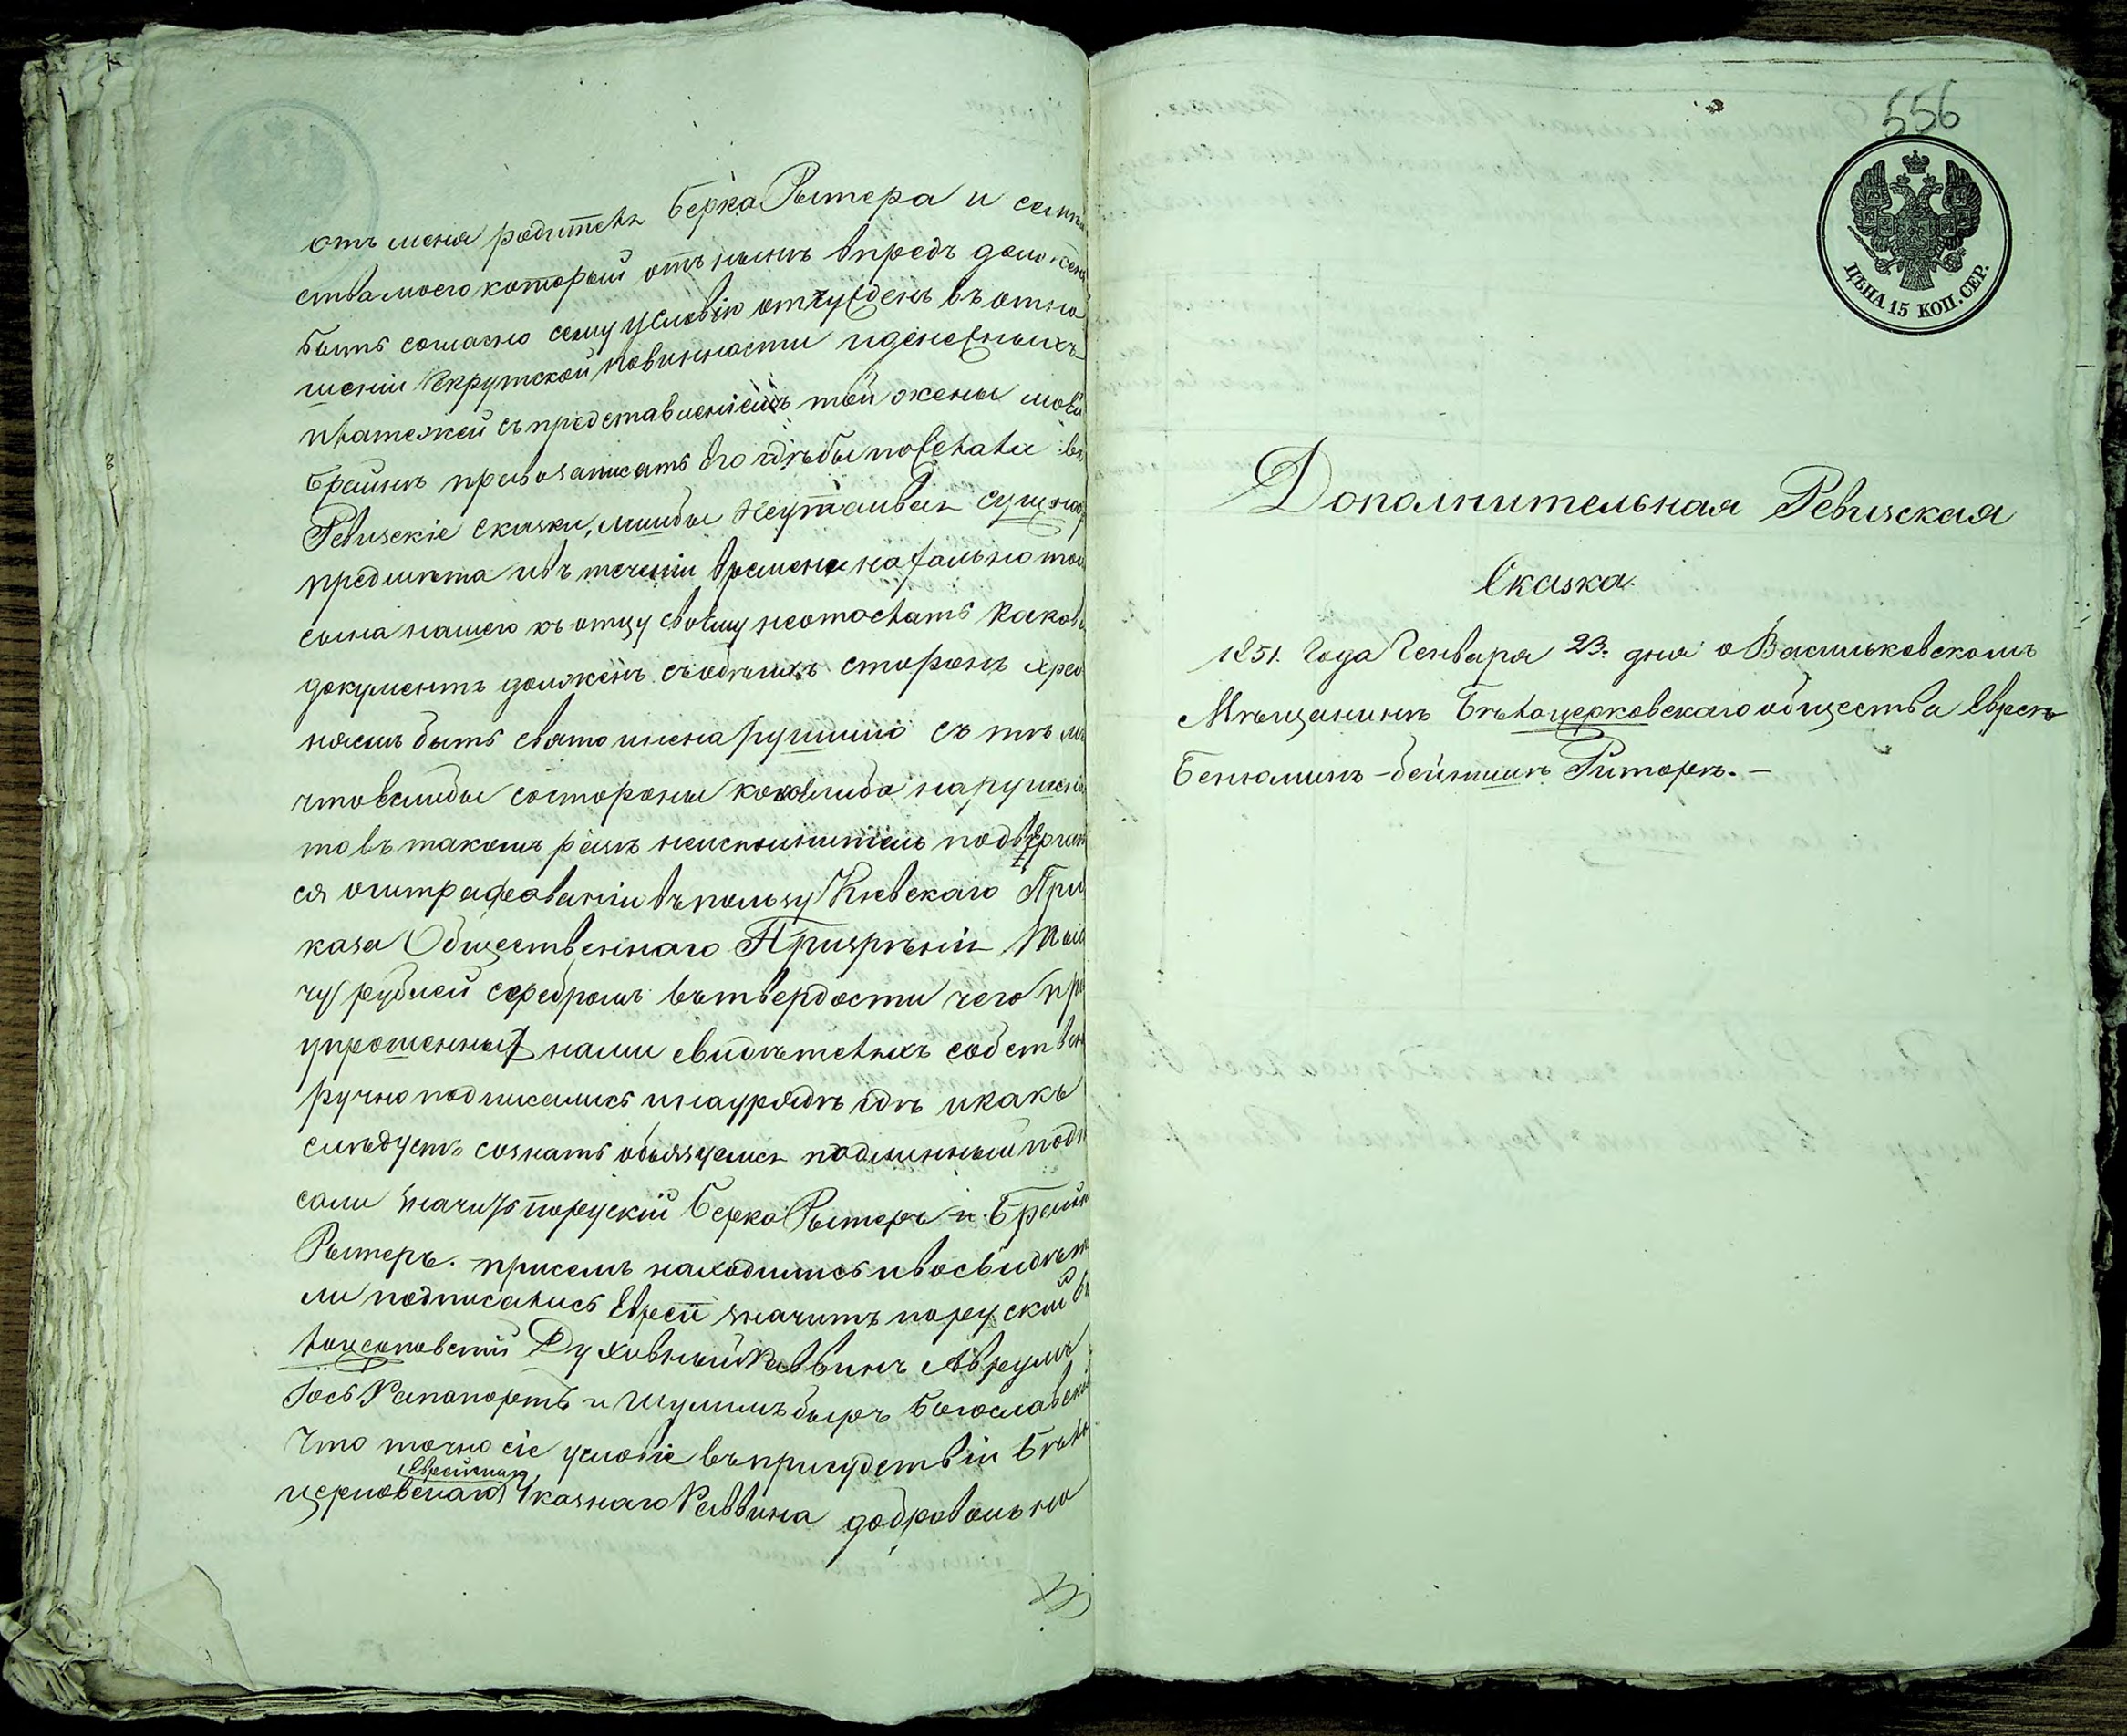 отъ меня родителя Берка Рытера и семей
ства моего который отъ нынѣ впредъ долженъ
быть согласно сему условію отчужденъ въ отно
шеніи Рекрутской повинности и денежныхъ
платежей съ представленіемъ той жены моей
Брайнѣ право записать его гдѣ бы пожелала въ
Ревизскіе сказки, лишбы неутаивая сущнос
предмѣта ивъ теченіи времени
сына нашего къ отцу своему каковой
документъ долженъ съ обѣихъ сторонъ хра
нясмъ быть свято иненарушимо съ тѣмъ
что еслибы состороны коголибо нарушенія
то въ такомъ разѣ неисполнитель подвергнет
ся оштрафованіи въ пользу Кіевскаго При
каза Общественнаго Призрѣнія Тыся
чу рублей серебромъ вътвердости чего при
упрошенных нами свидѣтеляхъ собствен
ручно подписались инаурядѣ гдѣ икакъ
слѣдуетъ сознать обызуемся подлинный подп
сали значитъ порускій Берко Рытеръ и Брайна
Рытеръ. присемъ находились ивосвидѣте
ли подписались Еврей значитъ порускій Бѣ
лоцерковскій Духовный Раввинъ Аврумъ
Іось Рапопортъ и Шулимъ Беръ Богославскій
Что точно сіе условіе въприсудствіи Бѣло
церковскаго Еврейскаго Указнаго Раввина добровольно
556
ЦѢНА 15 КОП. СЕР.
Дополнительная Ревизская
Сказка.
1851. Года Генваря 23. дня о Васильковскомъ
Мѣщанинѣ Бѣлоцерковскаго общества Евреѣ
Бенюминѣ-Бейнишѣ Риторѣ.-